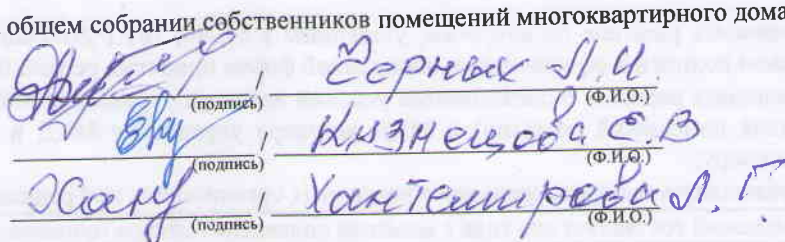 общем собрании собственников помещений многоквартирного дома
/ Черных Л.И
(подпись) (Ф.И.О.)
/ Кузнецова Е.В
(подпись) (Ф.И.О.)
/ Хантемирова Л.Г.
(подпись) (Ф.И.О.)